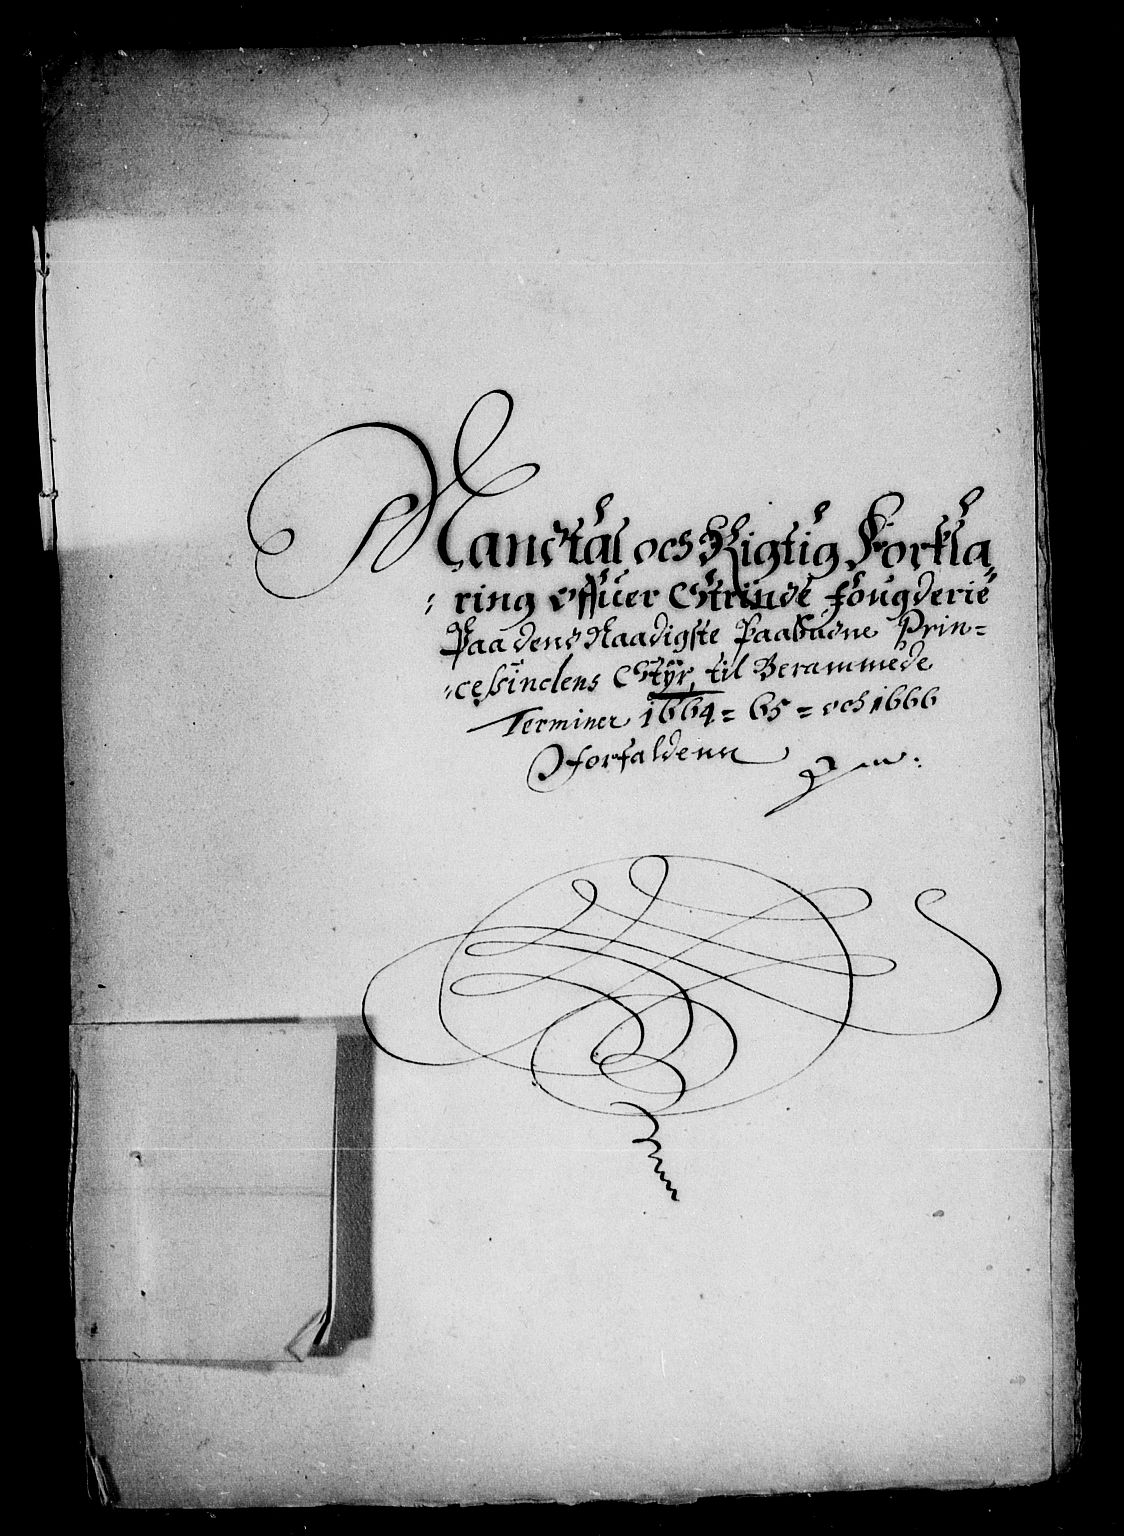 Mandtal och Rigtig Forkla-
ring offuer Strinde fougderie
Paa dend Naadigste Paabudne Prin-
cessindens Styr, til Berammede
Terminer 1664 = 65 = och 1666
forfaldenn